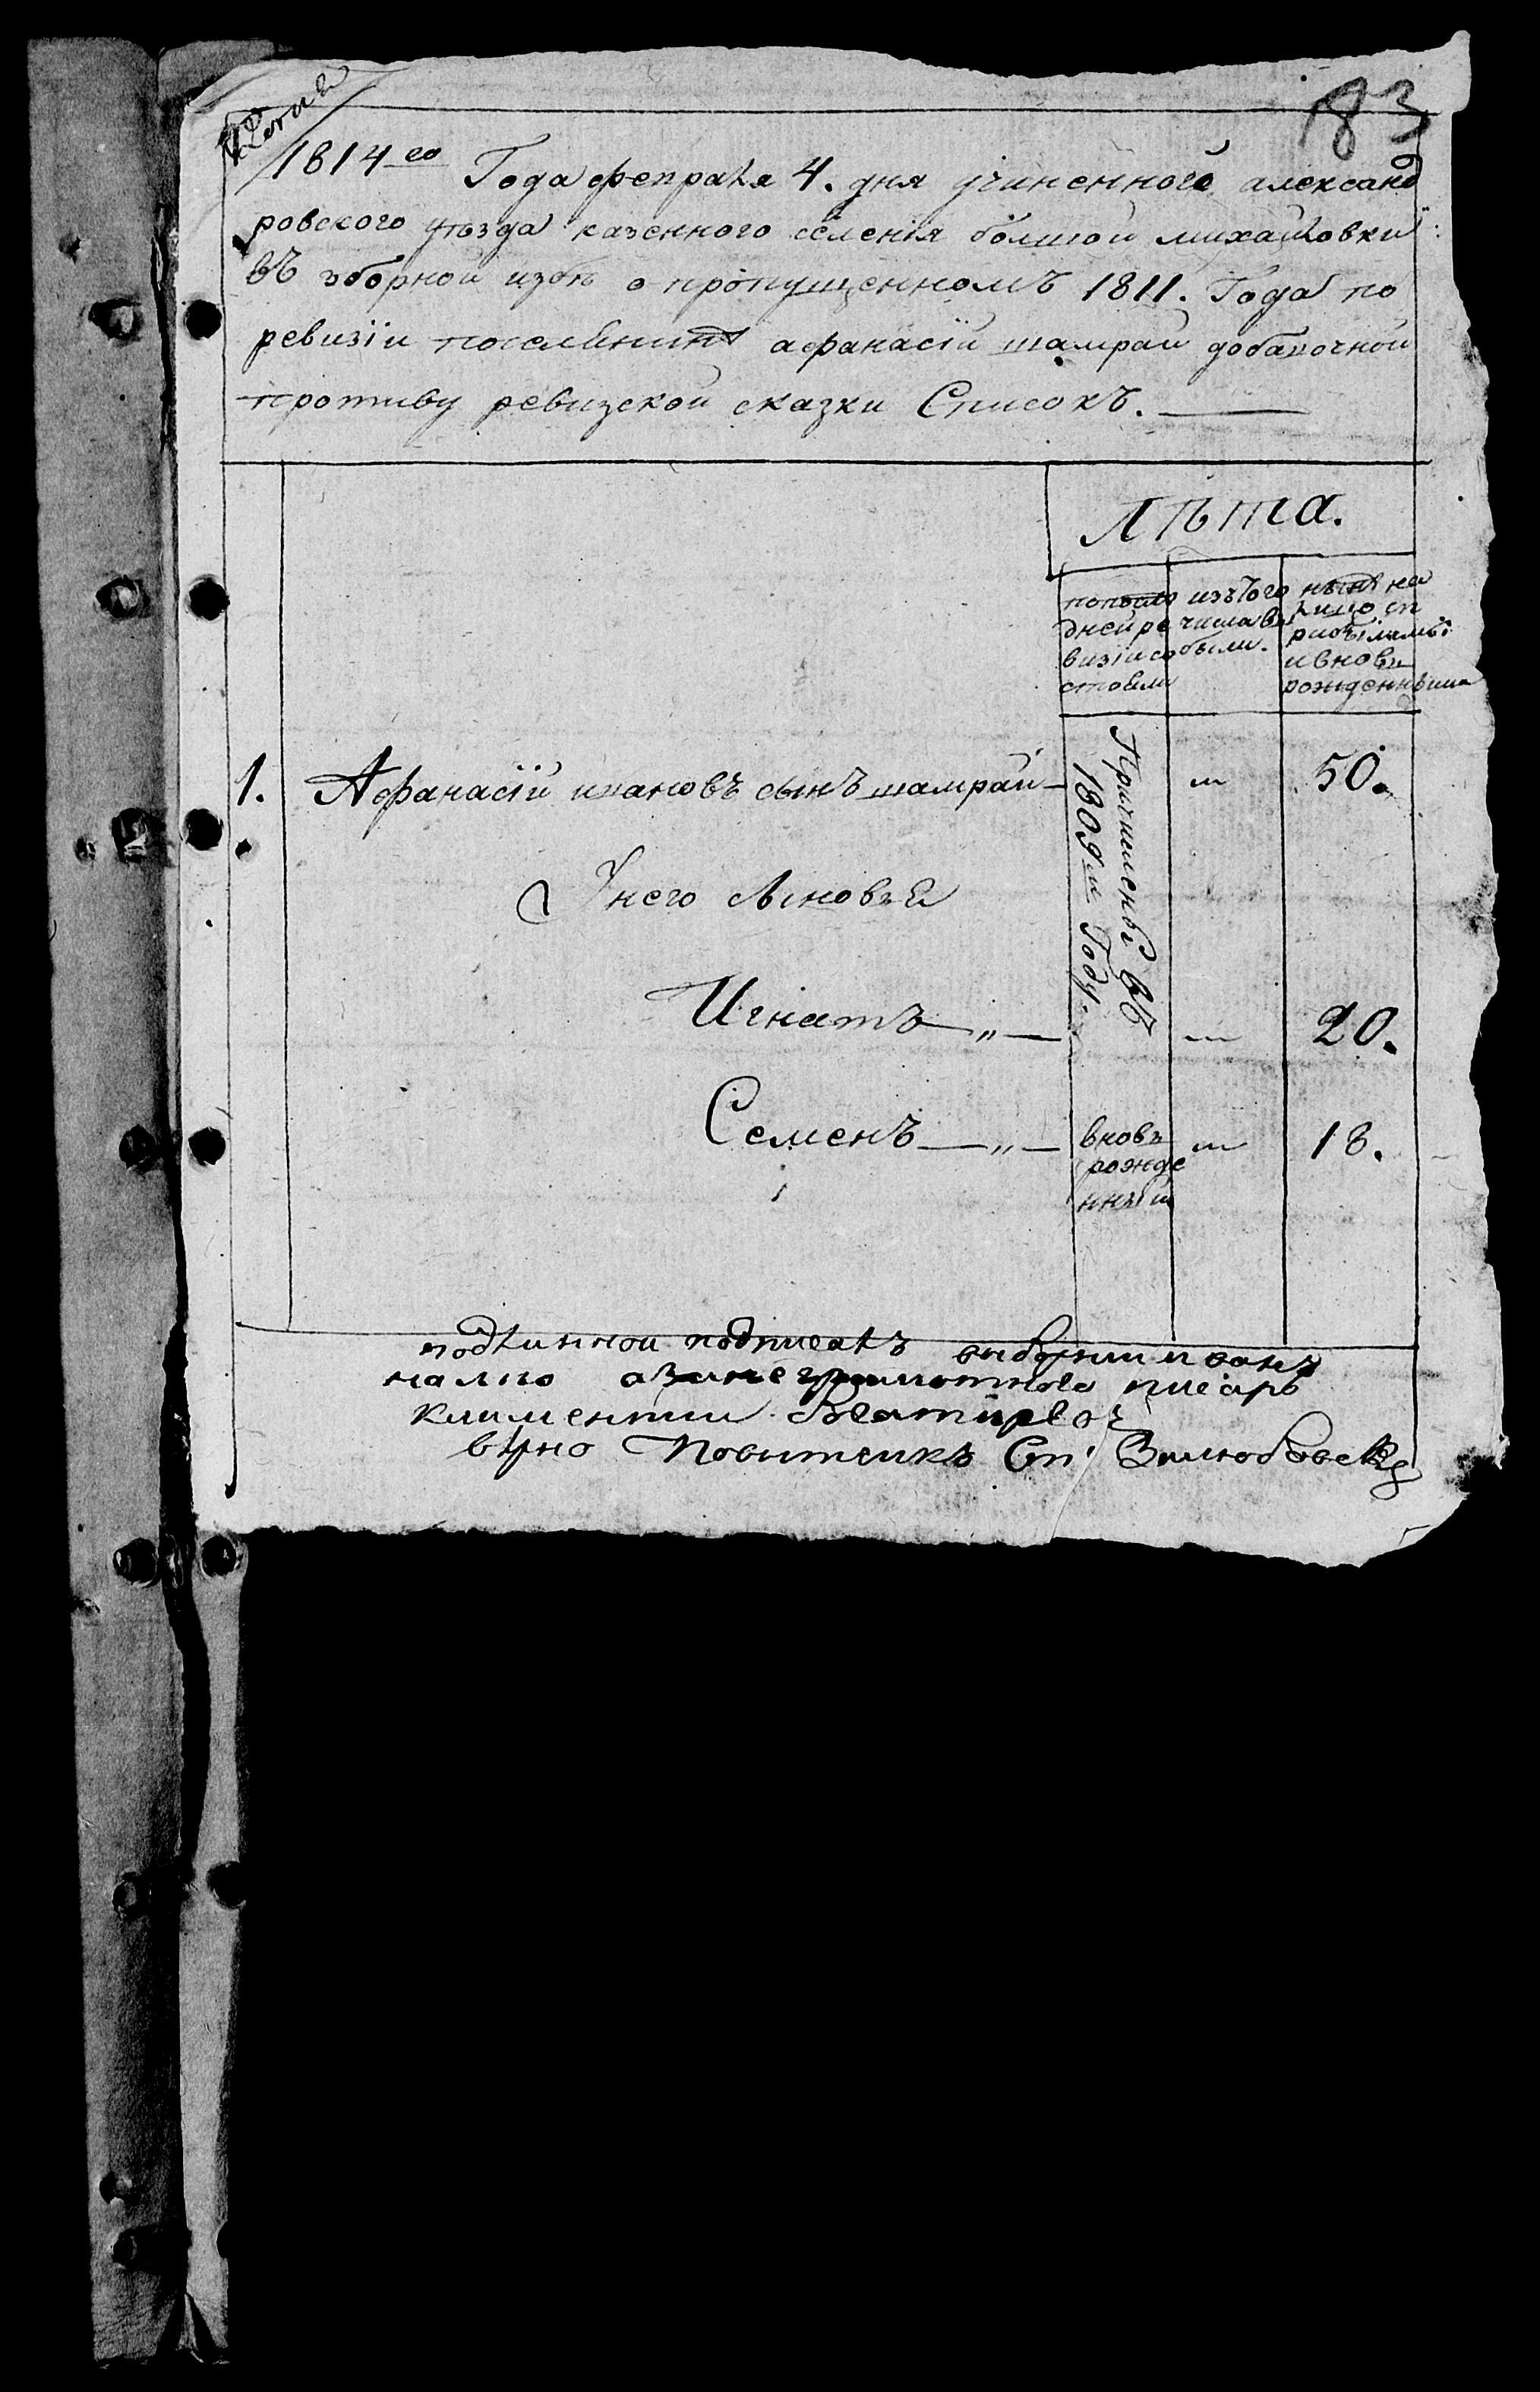 Копия
83
1814го Года февраля 4. дня учиненного александ
ровского уѣзда казенного селенія болшой михайловки
въ зборной избѣ о пропущенномъ 1811. Года по
ревизіи поселянинѣ афанасій шамрай добавочной
противу ревизской сказки Списокъ.
Лѣта.
по послѣ
дней ре
визіи со
стояли
изътого
числа вы
были.
нынѣ на
лицо съ
рожденными
и вновь
1. Афанасій ивановъ сынъ шамрай — 50.
Причислены въ
1809м Году.
У него сыновья
Игнатъ — „ — 20.
Семенъ — „ — вновь
рожде
нный
18.
подлинной подписалъ выборный иванъ
писарь
климентий
вѣрно Повытчикъ